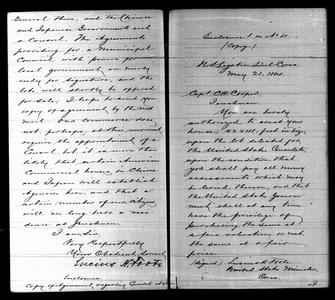 General there, and the Chinese
and Japanese Government each
a Consul. The Agreement
providing for a Municipal
Council with power for
local government is nearly
ready for signature, and the
lots will shortly be opened
for sale. I hope to send you
copy of agreement by the next
mail. Our commerce does
not, perhaps, at this moment
require the appointment of a
Consul but it is more than
likely that certain American
Commercial houses in China
and Japan will establish
Agencies here, and that a
certain number of our citizens
will ere long have a resi-
dence at Jenchuan.
I am Sir,
Very Respectfully
Your Obedient Servant
Lucius H. Foote
Enclosure
Copy of Agreement, regarding Consulate
Enclosure 1 in No. 80
(Copy.)
U.S. Legation Söul Corea
May 21. 1884.
Capt. C. H. Cooper
Jenchuan
You are hereby
authorized to erect your
house, feet high
upon the lot selected for
the United States Consulate
upon the condition that
you shall pay all money
assessments which may
be levied thereon, and that
the United States Govern-
ment shall at any time
have the privilege of
purchasing the same at
a fair valuation or rent
the same at a fair
price.
Signed Lucius H. Foote
United States Minister
Corea